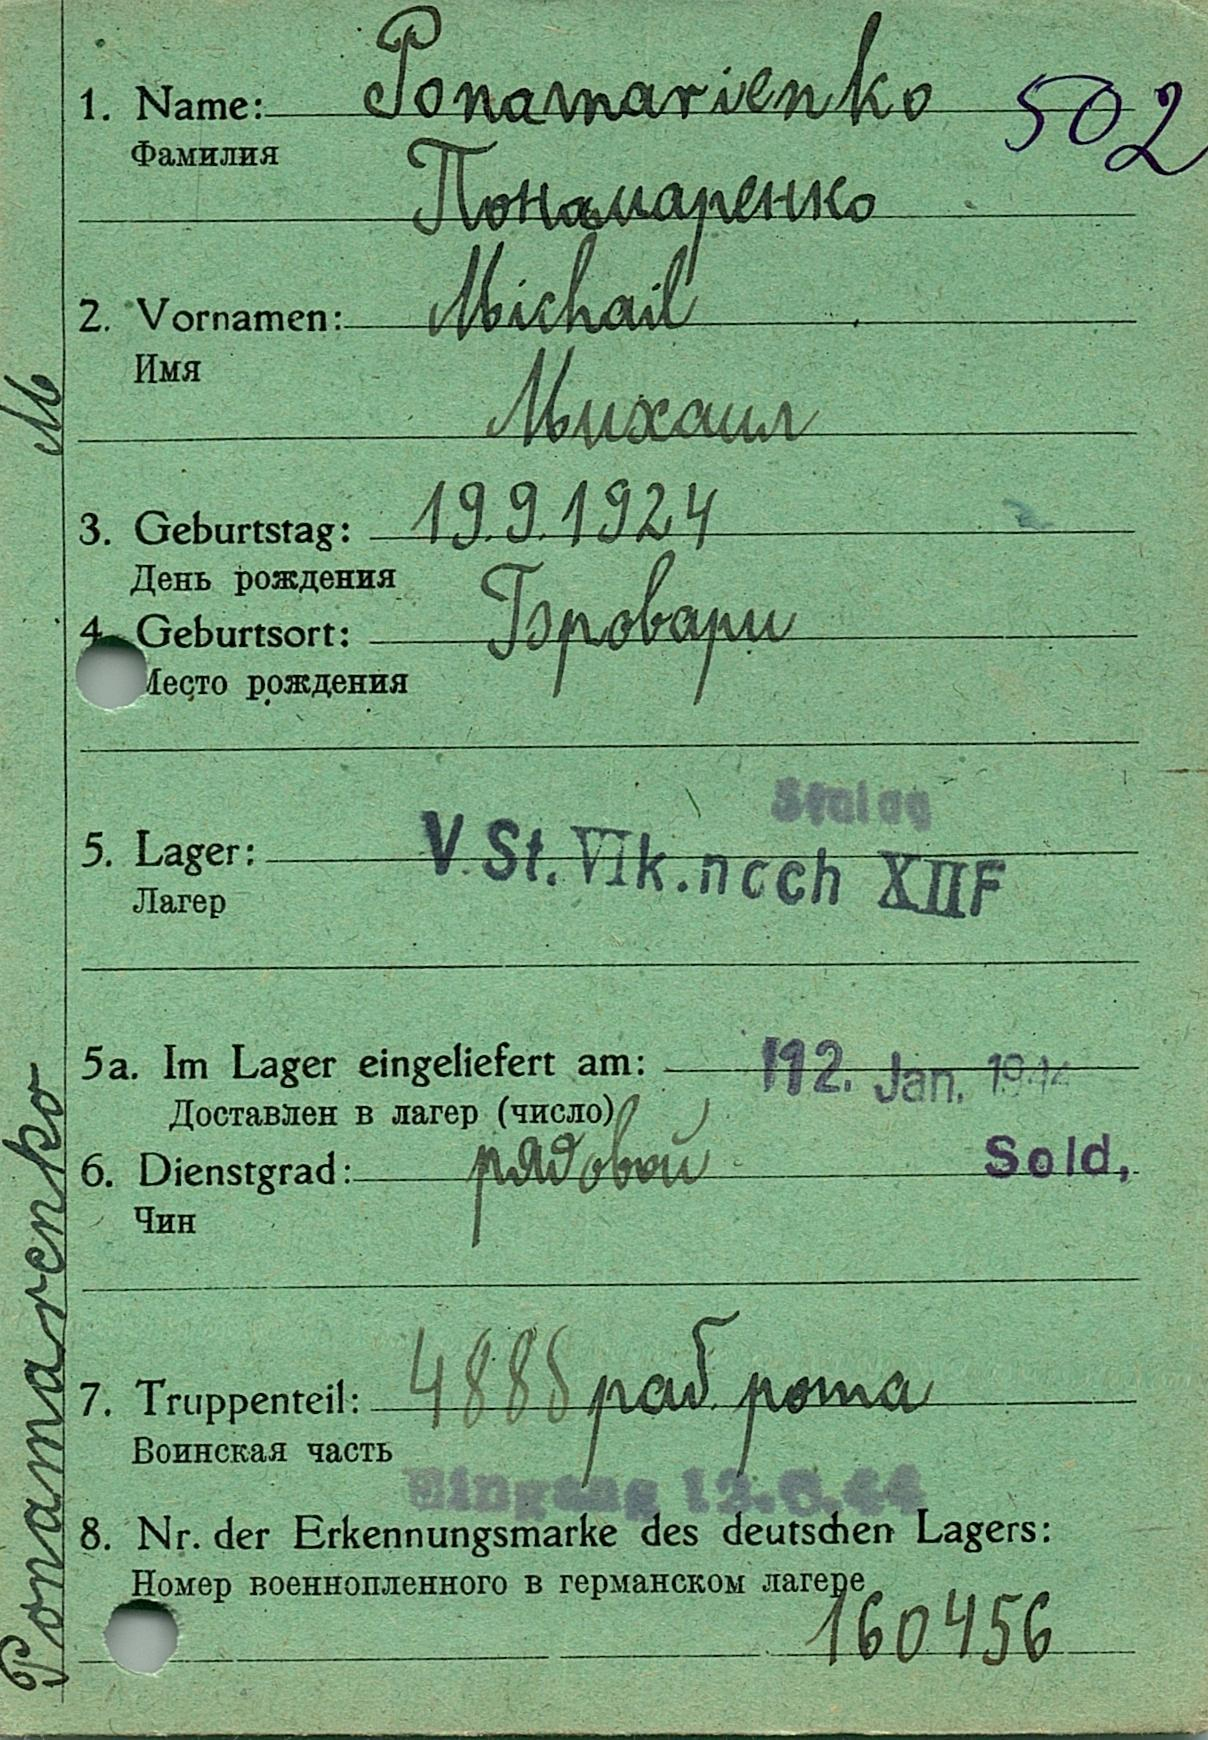 1. Name: Ponamarienko 502
Фамилия
Понамаренко
2. Vornamen: Michail
Имя
Михаил
3. Geburtstag: 19.9.1924
День рождения
4. Geburtsort: Бровари
Место рождения
Stalag
5. Lager: V. St. VIk. nach XIIF
Лагер
5a. Im Lager eingeliefert am: 12. Jan. 1944
Доставлен в лагер (число)
6. Dienstgrad: рядовой Sold.
Чин
7. Truppenteil: 4885 раб. рота
Воинская часть
Eingang
8. Nr. der Erkennungsmarke des deutschen Lagers:
Номер военнопленного в германском лагере
160456
Ponamarenko M